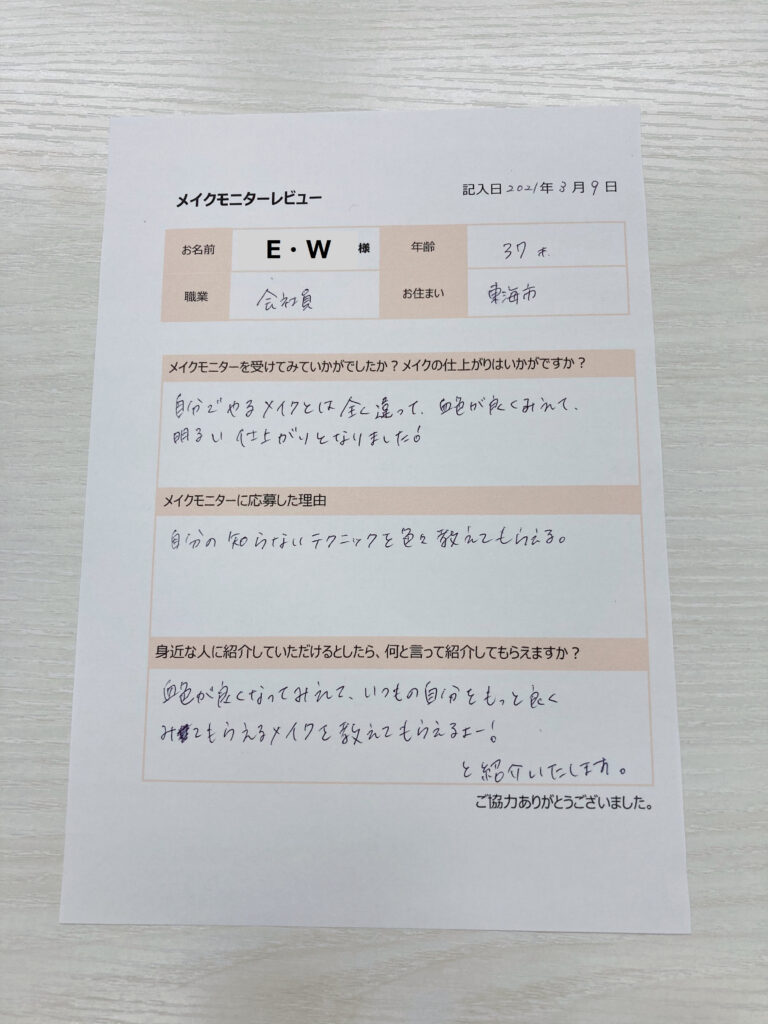 メイクモニターレビュー
記入日2021年3月9日
お名前 E・W 様 年齢 37才
職業 会社員 お住まい 東海市
メイクモニターを受けてみていかがでしたか？メイクの仕上がりはいかがですか？
自分でやるメイクとは全く違って、血色が良くみれて、
明るい仕上がりとなりました!
メイクモニターに応募した理由
自分の知らないテクニックを色々教えてもらえる。
身近な人に紹介していただけるとしたら、何と言って紹介してもらえますか？
血色が良くなってみれて、いつもの自分をもっと良く
みてもらえるメイクを教えてもらえるよー!
と紹介いたします。
ご協力ありがとうございました。